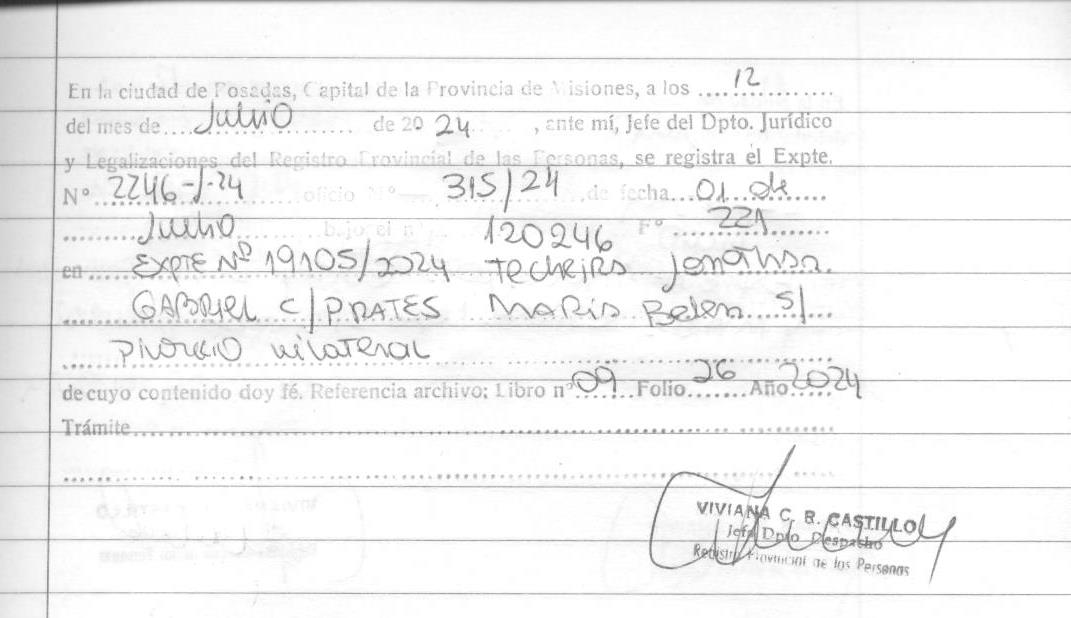 En la ciudad de Posadas, Capital de la Provincia de Misiones, a los 12
del mes de Julio de 2024, ante mí, Jefe del Dpto. Jurídico
y Legalizaciones del Registro Provincial de las Personas, se registra el Expte.
Nº 2246-J-24 oficio Nº 315/24 de fecha 01 de
Julio bajo el nº 120246 Fº 221
en EXPTE Nº 19105/2024 Techeira Jonathan
GABRIEL C/ PRATES MARIA Belen S/
Divorcio unilateral
de cuyo contenido doy fé. Referencia archivo: Libro nº 09 Folio 26 Año 2024
Trámite
VIVIANA C. B. CASTILLO
Jefa Dpto Despacho
Registro Provincial de las Personas